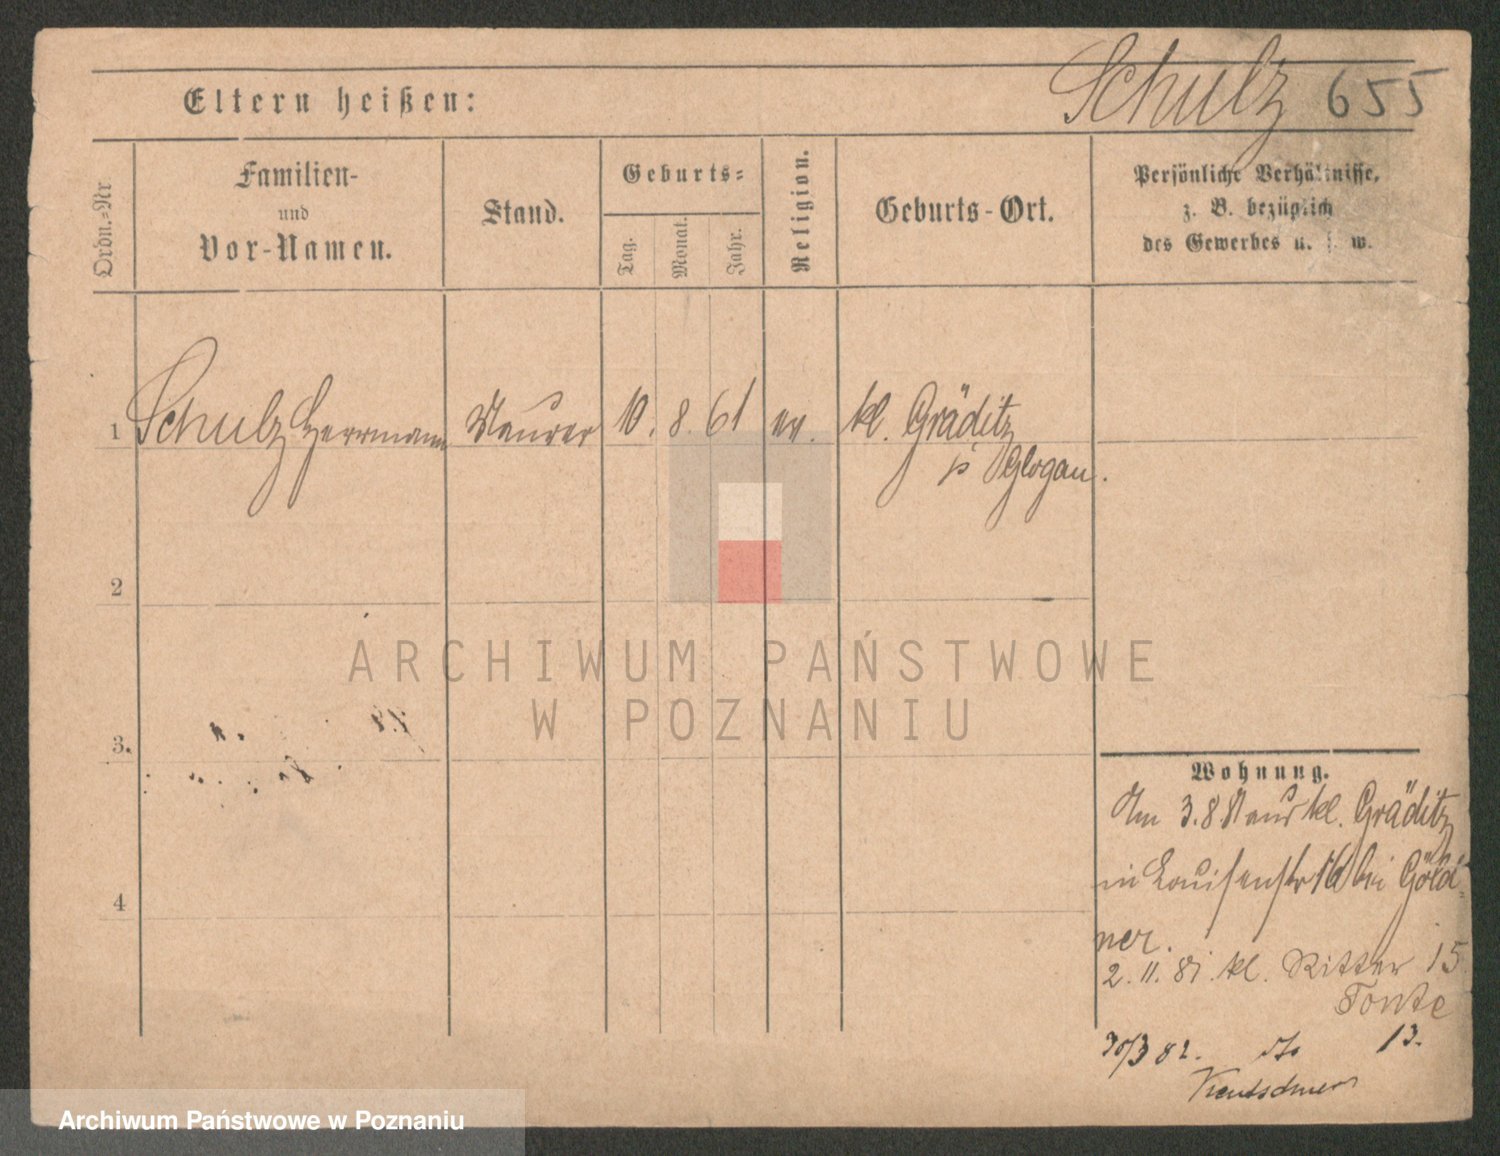 Eltern heißen:
Schulz 655
Ordn.-Nr
Familien-
und
Vor-Namen.
Stand.
Geburts-
Tag.
Monat.
Jahr.
Religion.
Geburts-Ort.
Persönliche Verhältnisse,
z. B. bezüglich
des Gewerbes u. s. w.
1 Schulz Herrmann Maurer 10. 8. 61 ev. kl. Gräditz
Glogau.
2
3.
4
Wohnung.
Am 3.8.81 aus kl. Gräditz
in Louisenstr 16 bei Göld-
ner.
2. 11. 81. kl. Ritter 15
30/3 82. dto 13.
ARCHIWUM PAŃSTWOWE
W POZNANIU
Archiwum Państwowe w Poznaniu